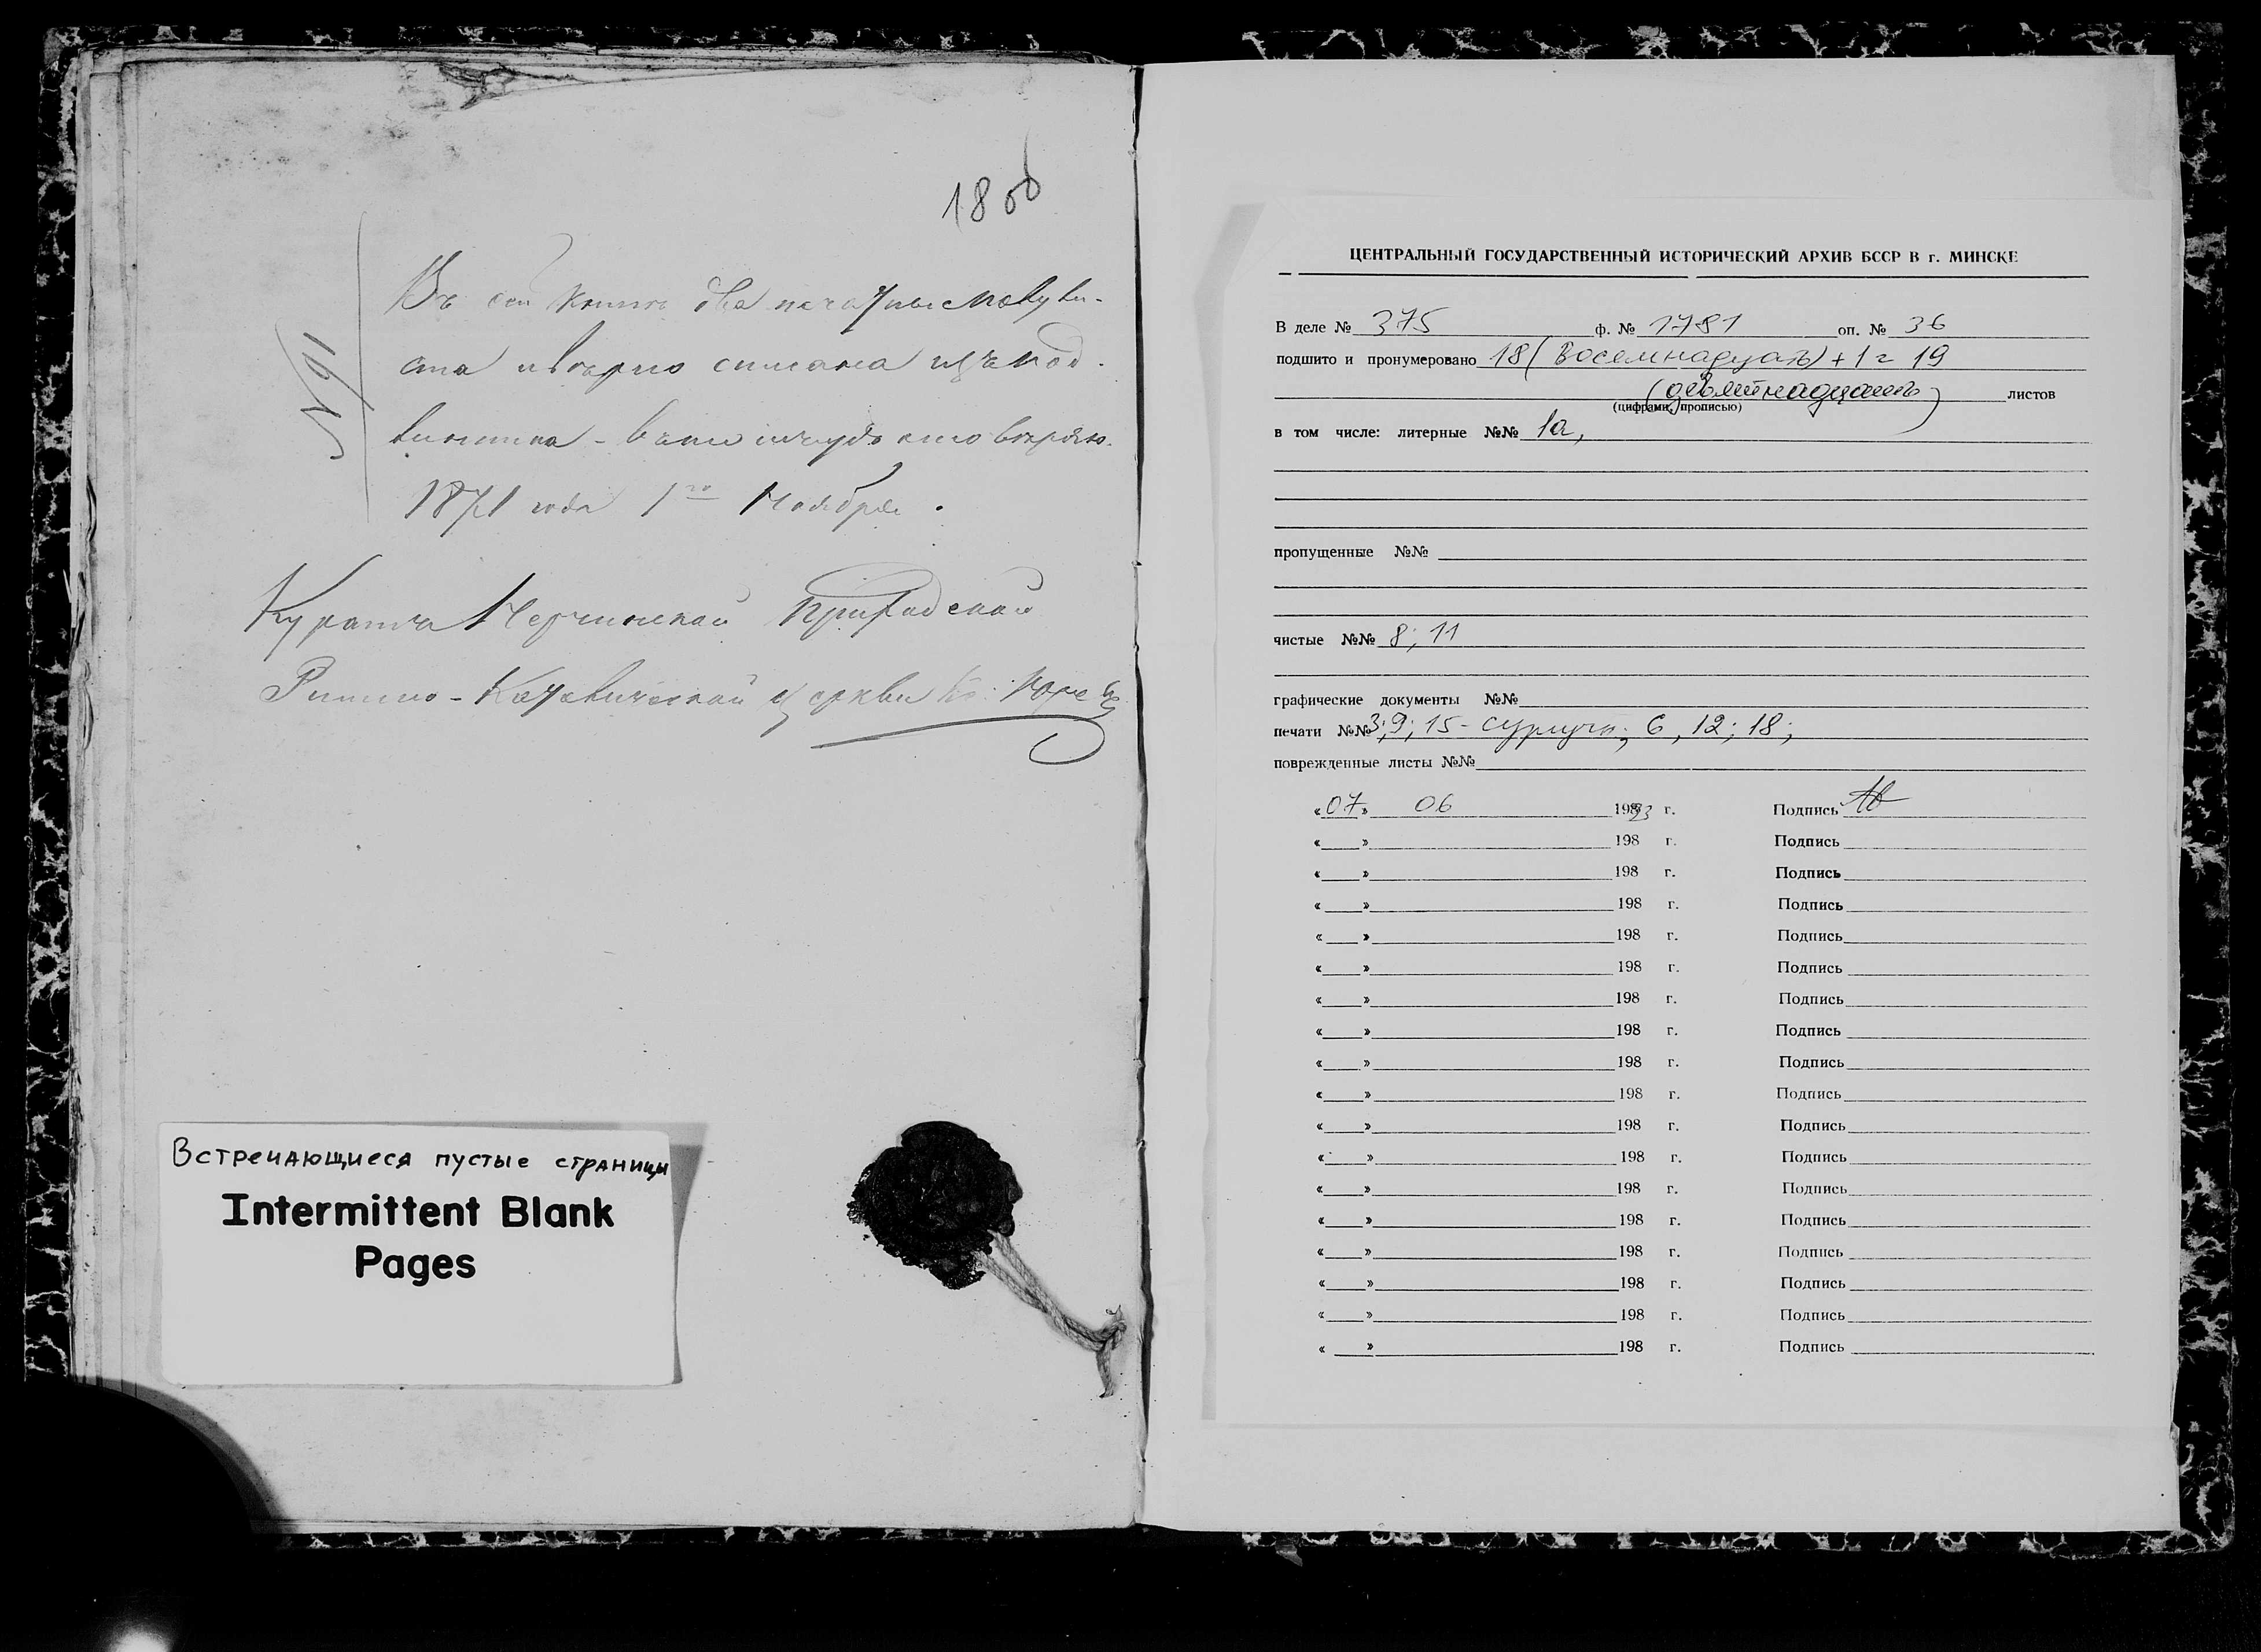 18 об
№91
Въ сей книгѣ два печатные
1871 года 1го Ноября.
Римско-Католической церкви
Встречающиеся пустые страницы
Intermittent Blank
Pages
ЦЕНТРАЛЬНЫЙ ГОСУДАРСТВЕННЫЙ ИСТОРИЧЕСКИЙ АРХИВ БССР В г. МИНСКЕ
В деле № 375 ф. № 1781 оп. № 36
подшито и пронумеровано 18 (Восемнадцать) + 1 = 19
(девятнадцать) листов
(цифрами, прописью)
в том числе: литерные №№ 1а,
пропущенные №№
чистые №№ 8; 11
графические документы №№
печати №№ 3; 9; 15 - сургучн.; 6, 12; 18;
поврежденные листы №№
«07» 06 1993 г. Подпись
« » 198 г. Подпись
« » 198 г. Подпись
« » 198 г. Подпись
« » 198 г. Подпись
« » 198 г. Подпись
« » 198 г. Подпись
« » 198 г. Подпись
« » 198 г. Подпись
« » 198 г. Подпись
« » 198 г. Подпись
« » 198 г. Подпись
« » 198 г. Подпись
« » 198 г. Подпись
« » 198 г. Подпись
« » 198 г. Подпись
« » 198 г. Подпись
« » 198 г. Подпись